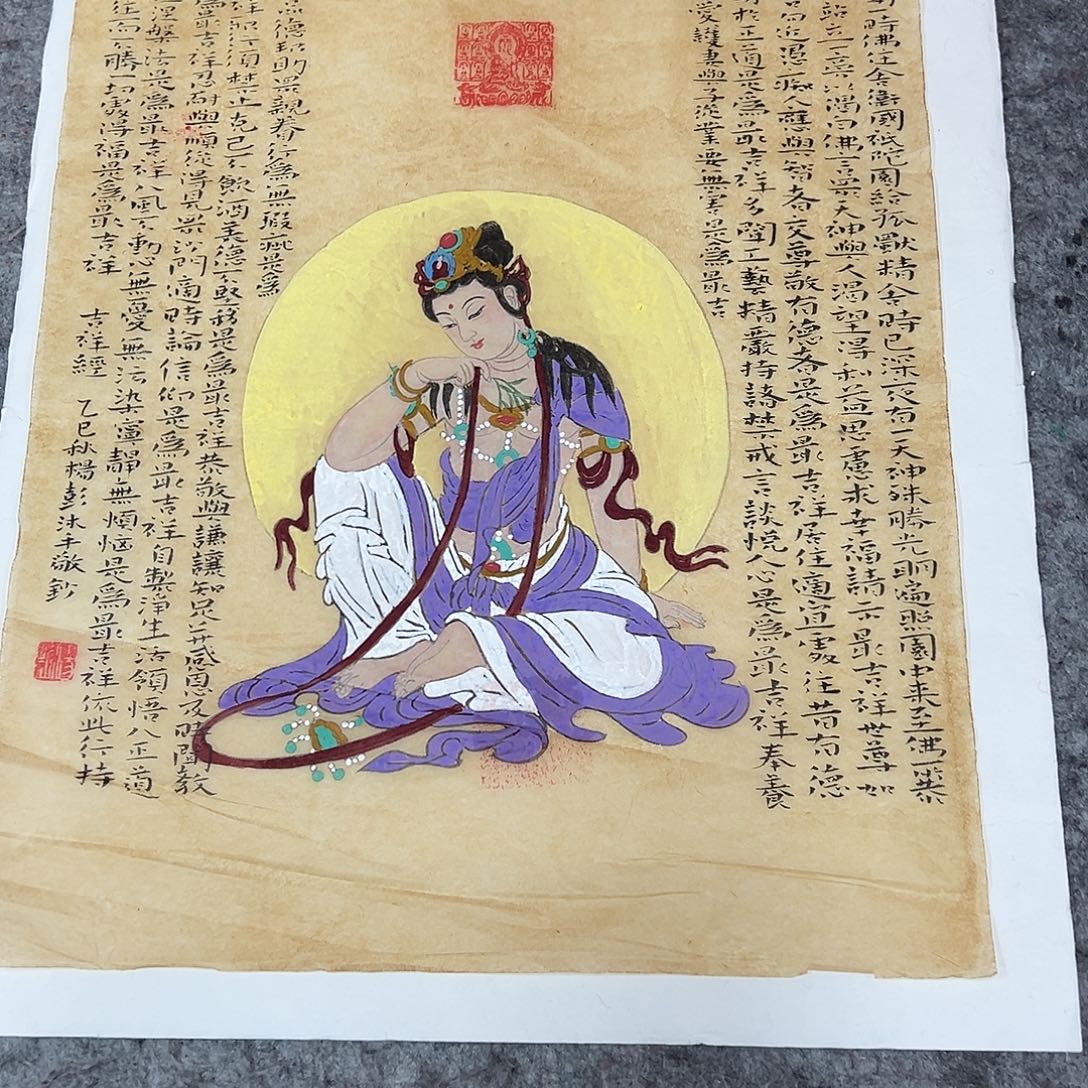 時佛住舍衛國祇陀園給孤獨精舍時已深夜有一天神殊勝光明遍照園中来至佛一恭
站立一旁以偈白佛言眾天神與人渴望得利益思慮求幸福請示最吉祥世尊如
答曰勿近愚癡人應與智者交尊敬有德者是為最吉祥居住適宜處往昔有德
於正道是為最吉祥多聞工藝精嚴持諸禁戒言談悅人心是為最吉祥奉養
愛護妻與子從業要無害是為最吉
德邦助眾親眷行為無瑕疵是為
祥邪行須禁止克己不飲酒美德不堅移是為最吉祥恭敬與謙讓知足并感恩及時聞教
是最吉祥忍耐與順從得見眾沙門適時論信仰是為最吉祥自製淨生活領悟八正道
涅槃法是為最吉祥八風不動心無憂無污染寧靜無煩惱是為最吉祥依此行持
往而不勝一切處得福是為最吉祥 吉祥經 乙巳秋楊彭沐手敬鈔